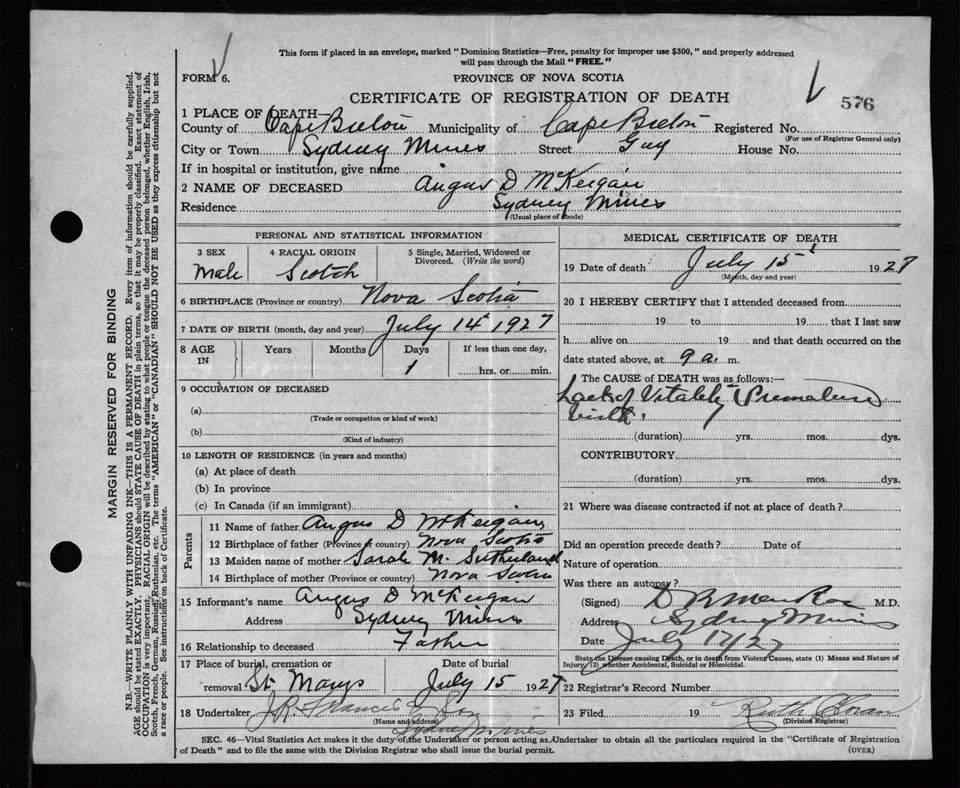 This form if placed in an envelope, marked "Dominion Statistics—Free, penalty for improper use $300," and properly addressed
will pass through the Mail "FREE."
FORM 6.
PROVINCE OF NOVA SCOTIA
CERTIFICATE OF REGISTRATION OF DEATH
576
1 PLACE OF DEATH—
County of Cape Breton Municipality of Cape Breton Registered No.
(For use of Registrar General only)
City or Town Sydney Mines Street Guy House No.
If in hospital or institution, give name
2 NAME OF DECEASED Angus D McKeigan
Residence Sydney Mines
(Usual place of abode)
PERSONAL AND STATISTICAL INFORMATION
3 SEX 4 RACIAL ORIGIN 5 Single, Married, Widowed or
Divorced. (Write the word)
Male Scotch
6 BIRTHPLACE (Province or country) Nova Scotia
7 DATE OF BIRTH (month, day and year) July 14 1927
8 AGE IN Years Months Days If less than one day,
1 hrs. or min.
9 OCCUPATION OF DECEASED
(a)
(Trade or occupation or kind of work)
(b)
(Kind of industry)
10 LENGTH OF RESIDENCE (in years and months)
(a) At place of death
(b) In province
(c) In Canada (if an immigrant)
Parents
11 Name of father Angus D McKeigan
12 Birthplace of father (Province or country) Nova Scotia
13 Maiden name of mother Sarah M. Sutherland
14 Birthplace of mother (Province or country) Nova Scotia
15 Informant's name Angus D McKeigan
Address Sydney Mines
16 Relationship to deceased Father
17 Place of burial, cremation or Date of burial
removal St. Marys July 15 1927
18 Undertaker J.R. Francis
(Name and address)
Sydney Mines
MEDICAL CERTIFICATE OF DEATH
19 Date of death July 15 1927
(Month, day and year)
20 I HEREBY CERTIFY that I attended deceased from
19 to 19 that I last saw
h alive on 19 and that death occurred on the
date stated above, at 9 a. m.
The CAUSE OF DEATH was as follows:—
Lack of Vitality (Premature
birth.
(duration) yrs. mos. dys.
CONTRIBUTORY
(duration) yrs. mos. dys.
21 Where was disease contracted if not at place of death?
Did an operation precede death? Date of
Nature of operation
Was there an autopsy?
(Signed) M.D.
Address Sydney Mines
Date July 17/27
State the Disease causing Death, or in death from Violent Causes, state (1) Means and Nature of
Injury, (2) whether Accidental, Suicidal or Homicidal.
22 Registrar's Record Number
23 Filed 19 Ruth
(Division Registrar)
SEC. 46—Vital Statistics Act makes it the duty of the Undertaker or person acting as Undertaker to obtain all the particulars required in the "Certificate of Registration
of Death" and to file the same with the Division Registrar who shall issue the burial permit.
(OVER)
MARGIN RESERVED FOR BINDING
N.B.—WRITE PLAINLY WITH UNFADING INK—THIS IS A PERMANENT RECORD. Every item of information should be carefully supplied.
AGE should be stated EXACTLY. PHYSICIANS should STATE CAUSE OF DEATH in plain terms, so that it may be properly classified. Exact statement of
OCCUPATION is very important. RACIAL ORIGIN will be described by stating to what people or tongue the deceased person belonged, whether English, Irish,
Scotch, French, German, Russian, Ruthenian, etc. The terms "AMERICAN" or "CANADIAN" SHOULD NOT BE USED as they express citizenship but not
a race or people. See instructions on back of Certificate.